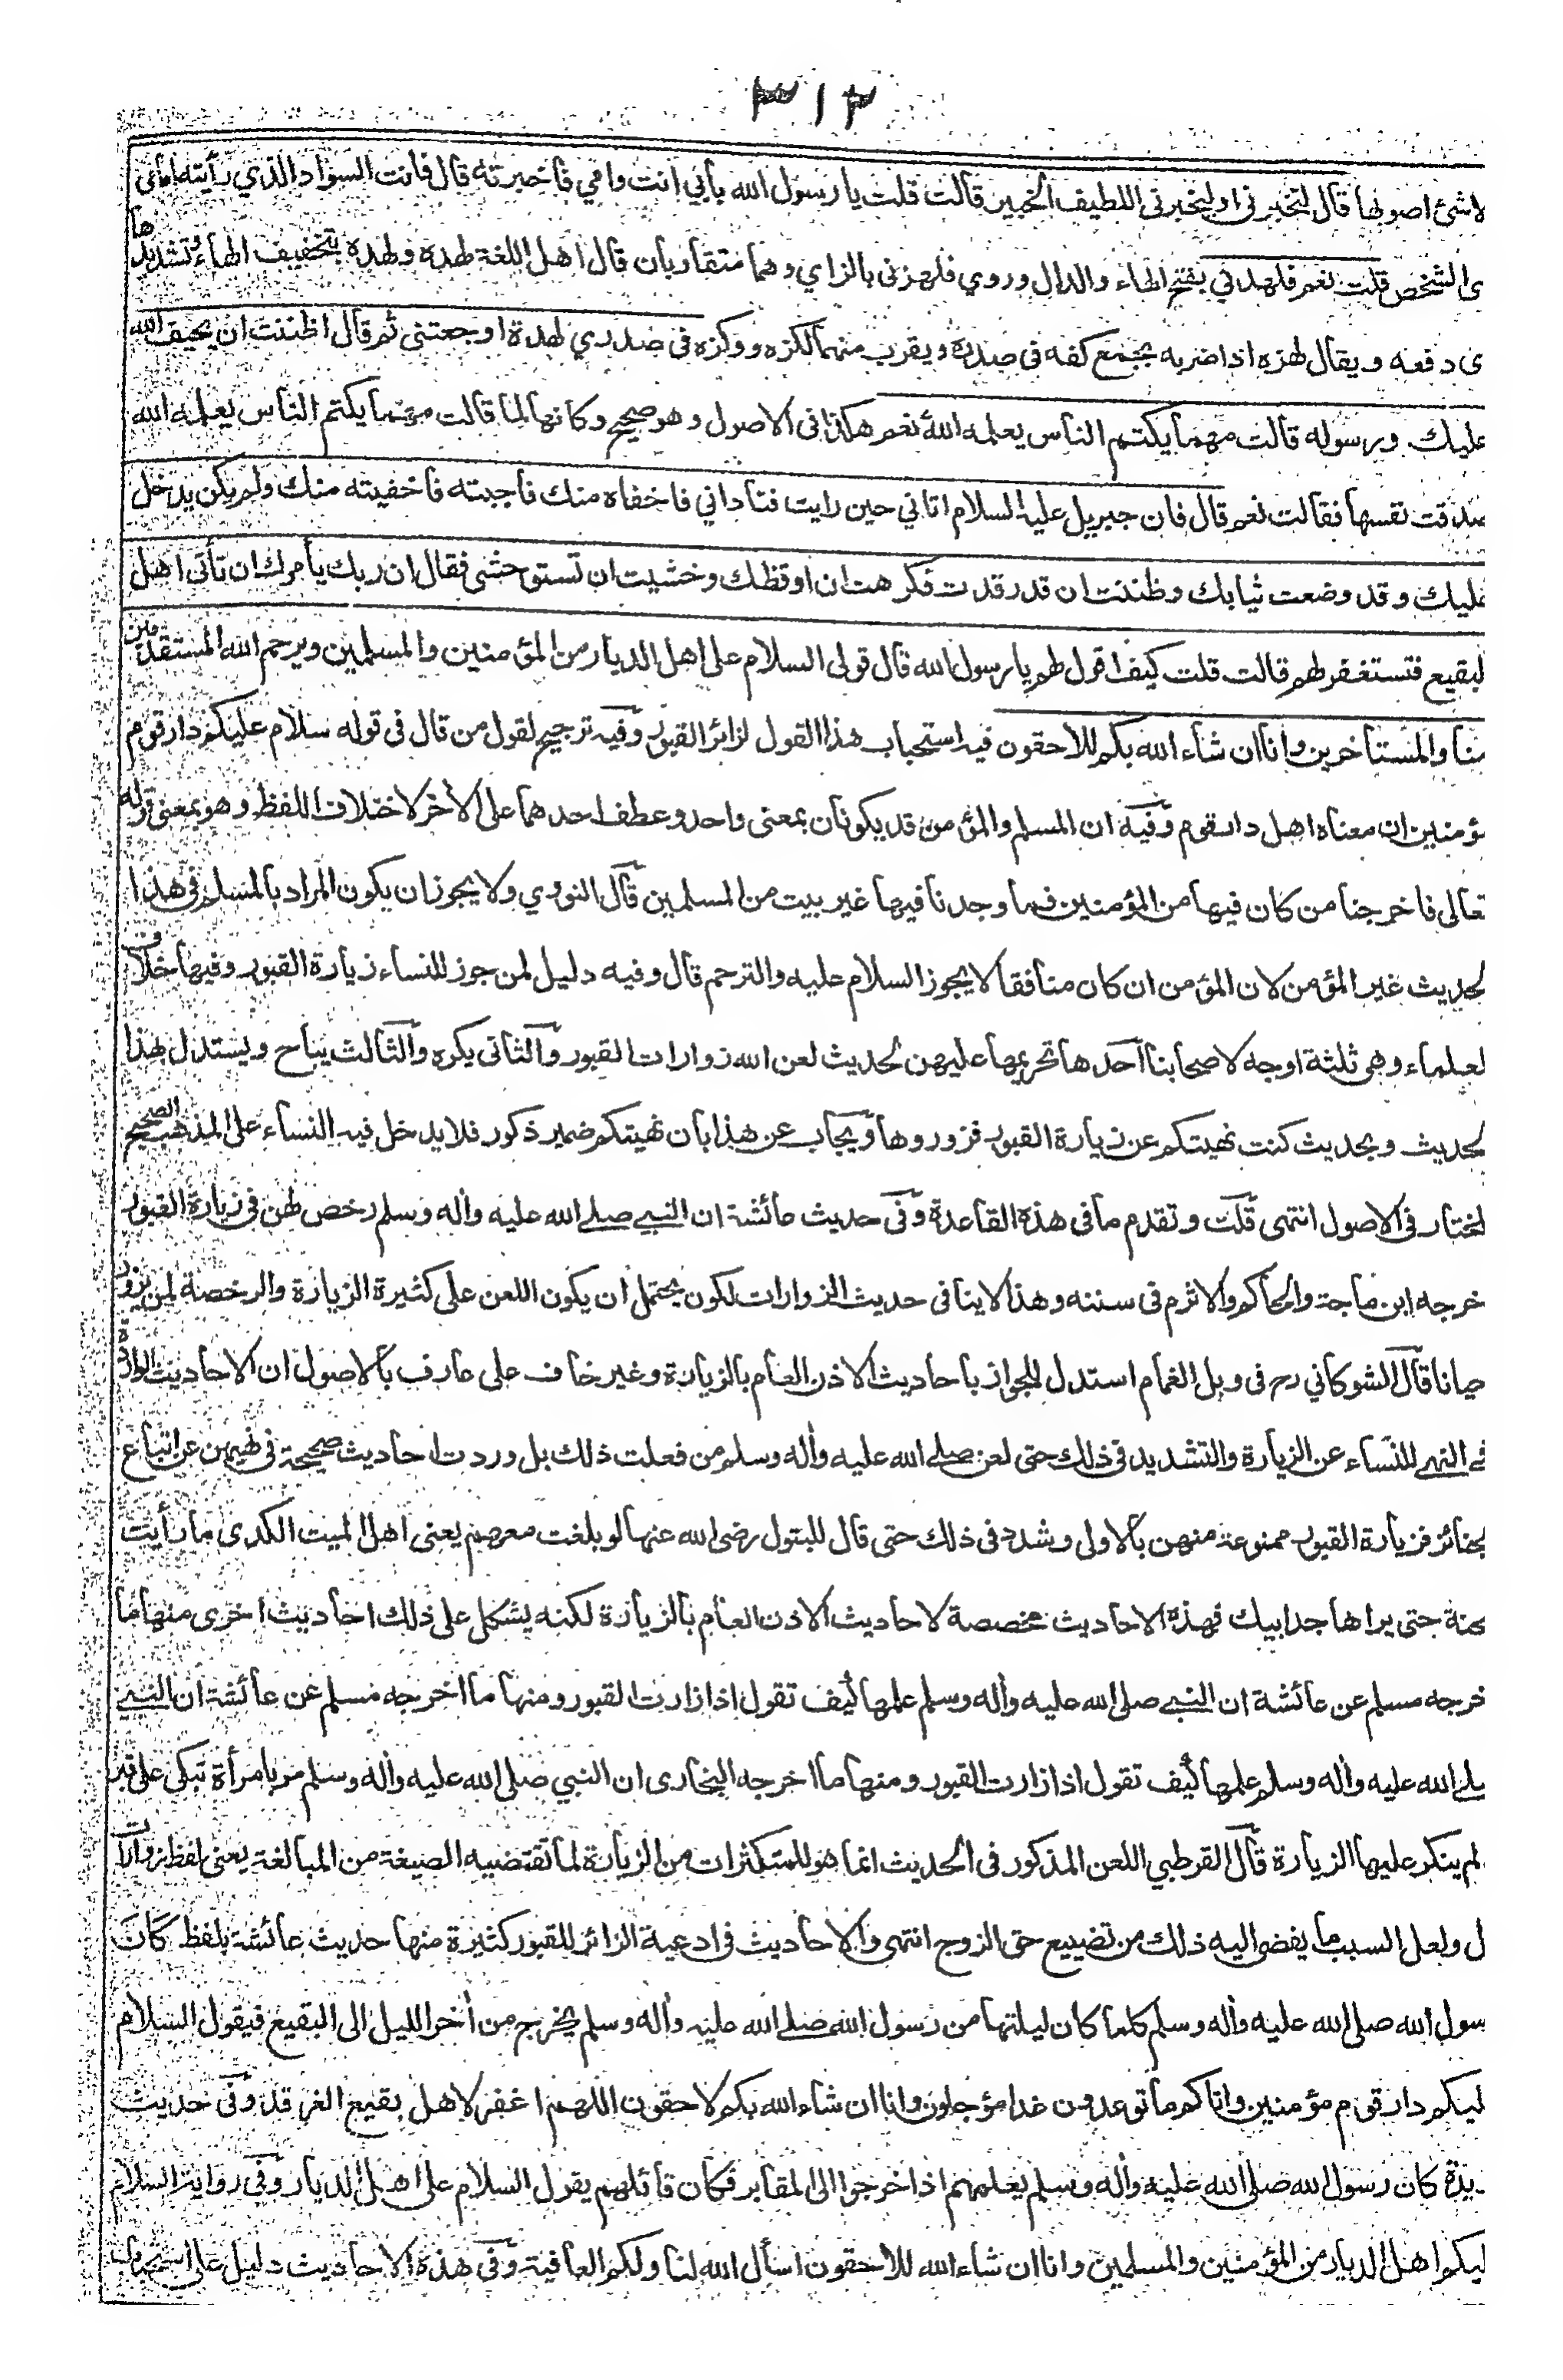 ٣١٢
لا شئ اصوبها قال لتخبرنى او ليخبرنى اللطيف الخبير قالت قلت يا رسول الله بأبي انت وامي فاخبرته قال فانت السواد الذي رأيته امامى
ى الشخص قلت نعم فلهدني بفتح الهاء والدال وروي فلهزنى بالزاي وهما متقاربان قال اهل اللغة لهده ولهده بتخفيف الهاء وتشديدها
ى دفعه ويقال لهزه اذا ضربه بجمع كفه فى صدره ويقرب منهما لكزه ووكزه فى صدري لهدة اوجعتنى ثم قال اظننت ان يحيف الله
عليك ورسوله قالت مهما يكتم الناس يعلمه الله نعم هكذا فى الاصول وهو صحيح وكانها لما قالت مهما يكتم الناس يعلمه الله
صدقت نفسها فقالت نعم قال فان جبريل عليه السلام اتاني حين رايت فناداني فاخفاه منك فاجبته فاخفيته منك ولم يكن يدخل
عليك وقد وضعت ثيابك وظننت ان قد رقدت فكرهت ان اوقظك وخشيت ان تستوحشى فقال ان ربك يأمرك ان تأتى اهل
لبقيع فتستغفر لهم قالت قلت كيف اقول لهم يا رسول الله قال قولى السلام على اهل الديار من المؤمنين والمسلمين ويرحم الله المستقدمين
منا والمستأخرين وانا ان شاء الله بكم للاحقون فيه استحباب هذا القول لزائر القبور وفيه ترجيح لقول من قال فى قوله سلام عليكم دار قوم
ؤمنين ان معناه اهل دار قوم وفيه ان المسلم والمؤمن قد يكونان بمعنى واحد وعطف احدهما على الأخر لاختلاف اللفظ وهو بمعنى قوله
تعالى فاخرجنا من كان فيها من المؤمنين فما وجدنا فيها غير بيت من المسلمين قال النووي ولا يجوز ان يكون المراد بالمسلم فى هذا
لحديث غير المؤمن لان المؤمن ان كان منافقا لا يجوز السلام عليه والترحم قال وفيه دليل لمن جوز للنساء زيارة القبور وفيها خلاف
لعلماء وهى ثلثة اوجه لاصحابنا احدها تحريمها عليهن لحديث لعن الله زوارات القبور والثانى يكره والثالث يباح ويستدل بهذا
لحديث وبحديث كنت نهيتكم عن زيارة القبور فزوروها ويجاب عن هذا بان نهيتكم ضمير ذكور فلا يدخل فيه النساء على المذهب الصحيح
لمختار فى الاصول انتهى قلت وتقدم ما فى هذه القاعدة وفى حديث عائشة ان النبي صلى الله عليه وأله وسلم رخص لهن فى زيارة القبور
خرجه ابن ماجة والحاكم والاثرم فى سننه وهذا لا ينافى حديث الزوارات لكون يحتمل ان يكون اللعن على كثيرة الزيارة والرخصة لمن يزور
حيانا قال الشوكاني رح فى وبل الغمام استدل للجواز باحاديث الاذن العام بالزيارة وغير خاف على عارف بالاصول ان الاحاديث الواردة
فى النهى للنساء عن الزيارة والتشديد فى ذلك حتى لعن صلى الله عليه وأله وسلم من فعلت ذلك بل وردت احاديث صحيحة فى نهيهن عن اتباع
لجنائز فزيارة القبور ممنوعة منهن بالاولى وشدد فى ذلك حتى قال للبتول رضى الله عنها لو بلغت معهم يعنى اهل الميت الكدى ما رأيت
لجنة حتى يراها جد ابيك فهذه الاحاديث مخصصة لاحاديث الاذن العام بالزيارة لكنه يشكل على ذلك احاديث اخرى منها ما
خرجه مسلم عن عائشة ان النبي صلى الله عليه وأله وسلم علمها كيف تقول اذا زارت القبور ومنها ما اخرجه مسلم عن عائشة ان النبي
صلى الله عليه وأله وسلم علمها كيف تقول اذا زارت القبور ومنها ما اخرجه البخارى ان النبي صلى الله عليه وأله وسلم مر بامرأة تبكى على قبر
لم ينكر عليها الزيارة قال القرطبي اللعن المذكور فى الحديث انما هو للمتكثرات من الزيارة لما تقتضيه الصيغة من المبالغة يعنى لفظ زوارات
ل ولعل السبب ما يفضى اليه ذلك من تضييع حق الزوج انتهى والاحاديث فى ادعية الزائر للقبور كثيرة منها حديث عائشة بلفظ كان
سول الله صلى الله عليه وأله وسلم كلما كان ليلتها من رسول الله صلى الله عليه وأله وسلم يخرج من أخر الليل الى البقيع فيقول السلام
ليكم دار قوم مؤمنين واتاكم ما توعدون غدا مؤجلون وانا ان شاء الله بكم لاحقون اللهم اغفر لاهل بقيع الغرقد وفى حديث
يدة كان رسول الله صلى الله عليه وأله وسلم يعلمهم اذا خرجوا الى المقابر فكان قائلهم يقول السلام على اهل الديار وفى رواية السلام
ليكم اهل الديار من المؤمنين والمسلمين وانا ان شاء الله للاحقون اسأل الله لنا ولكم العافية وفى هذه الاحاديث دليل على استحباب